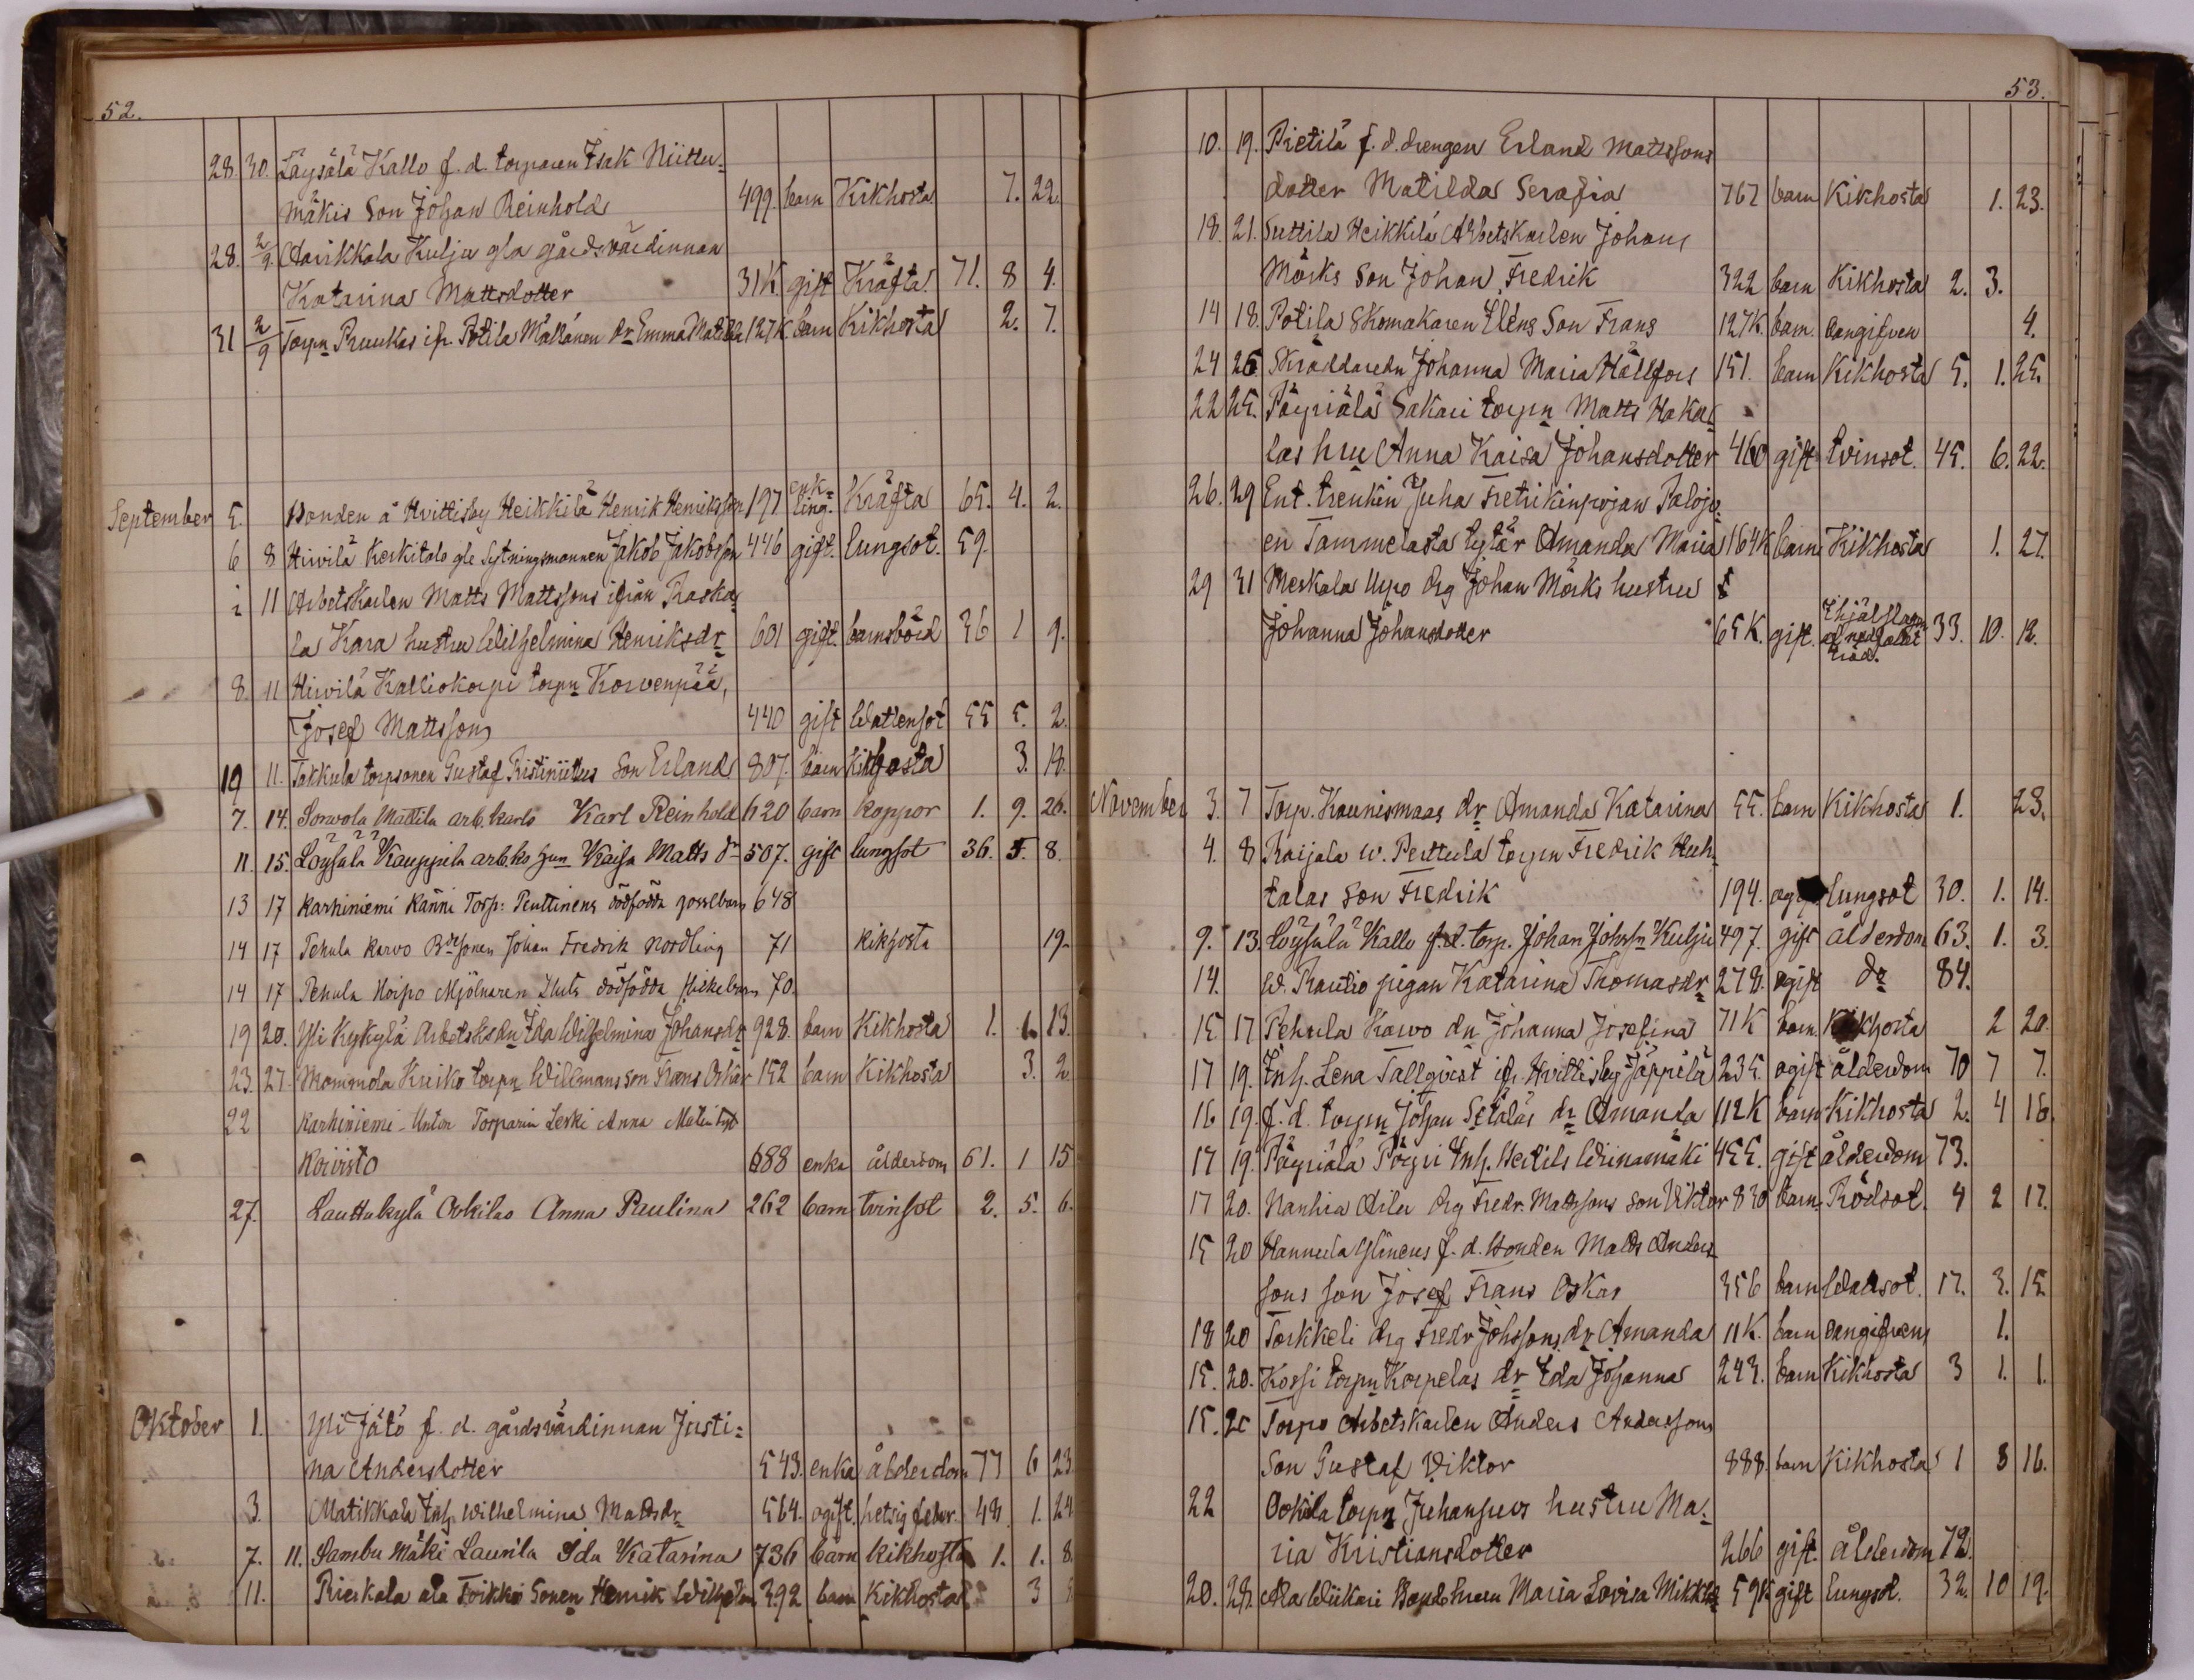 52.
28. 30. Läysälä Kallo f. d. torparen Isak Niittu-
mäkis Son Johan Reinhold 499. barn Kikhosta 7. 22.
28. 2/9. Anikkala Kulju gla gårdsvärdinnan
Katarina Mattsdotter 31K gift Kräfta 71. 8 4.
31 2/9 Torpn Ruukas ifr. Potila Mällänen dr Emma Matilda 127K. barn Kikhosta 2. 7.
September 5. Bonden å Hvittisby Heikkilä Henrik Henriksson 197 enk-
ling. Kräfta 65. 4. 2.
6 8 Hirvilä Keskitalo gle Sytningsmannen Jakob Jakobsson 446 gift. lungsot. 59.
i 11 Arbetskarlen Matts Mattssons ifrån Raska-
la Kara hustru Wilhelmina Henriksdr 601 gift. barnsbörd 36 1 9.
8. 11 Hirvilä Kalliokorpi torpn Korvenpää,
Josef Mattsson 440 gift Wattensot 55 5. 2.
19 11. Takkula torpsonen Gustaf Ristiniittus Son Erland 807. barn kikhosta 3. 18.
7. 14. Sorvola Mattila arb.karls Karl Reinhold 620 barn koppor 1. 9. 26.
11. 15. Löysälä Kauppila arb.ks hun Kaisa Matts dr 507. gift lungsot 36. 5. 8.
13 17 Karhiniemi Känni Torp: Penttinens dödfödda gossebarn 648
14 17 Pehula Karvo Bdesonen Johan Fredrik Nordling 71 kikhosta 19.
14 17 Pehula Hoipo Mjölnaren dödfödda flickebarn 70.
19 20. Yli Kykylä Arbetsksdn Ida Wilhelmina Johansdr 928. barn Kikhosta 1. 6. 13.
23. 27. Mommola Kuiko torpn Willmans son Frans Oskar 152 barn Kikhosta 3. 2
22 Karhiniemi-Unton Torparin Leski Anna Matintyt
Koivisto 688 enka ålderdom 61. 1 15
27. Lauttakylä Ookilas Anna Paulina 262 barn tvinsot 2. 5. 6.
Oktober 1. Yli Jätö f. d. gårdsvärdinnan Justi=
na Andersdotter 543. enka ålderdom 77 6 23
3. Matikkala Inh. Wilhelmina Mattsdr 564. ogift. hetsig feber. 48. 1. 24
7. 11. Sambu Mäki Laurila Ida Katarina 736 barn kikhosta 1. 1. 8.
11. Rieskala ala Toikko Sonen Henrik Wilhelm 392 barn Kikhosta 3
53.
10. 19. Pietilä f. d. drengen Erland Mattssons
dotter Matilda Serafia 767 barn Kikhosta 1. 23.
18. 21. Suttila Heikkilä Arbetskarlen Johans
Mörks Son Johan Fredrik 322 barn Kikhosta 2. 3.
14 18. Potila Skomakaren Eléns Son Frans 127K. barn. oangifven 4.
24 26 Skräddaredn Johanna Maria Hällfors 151. barn Kikhosta 5. 1. 25.
22 25. Päyriälä Sakari torpn Matts Haka-
las hru Anna Kaisa Johansdotter 460 gift tvinsot. 45. 6. 22.
26. 29 Ent. trenkin Juha Fretrikinpojan Palojo-
en Tammelasta tytär Amanda Maria 164K barn Kikhosta 1. 27.
29 31 Meskala Uspo drg Johan Mörks hustru
Johanna Johansdotter 65K. gift. Ihjälslagen
af nedfallet 33. 10. 12.
träd.
November 3. 7 Torp. Kaunismaas dr Amanda Katarina 55. barn Kikhosta 1. 23.
4. 8 Raijala w. Perttula torpn Fredrik Huh-
talas son Fredrik 194. lungsot 30. 1. 14.
9. 13. Löysälä Kallo f.d. torp. Johan Johssn Kulju 497. gift ålderdom 63. 1. 3.
14. W. Rautio pigan Katarina Thomasdr 278. ogift do 84.
15 17 Pehula Karvo dn Johanna Josefina 71K barn Kikhosta 2 20.
17 19. Inh. Lena Tallqvist ifr. Hvittisby Jäppilä 235. ogift ålderdom 70 7 7.
16 19. f. d. torpn Johan Setäläs dr Amanda 112K barn Kikhosta 2. 4 16.
17 19. Päyriälä Pörri Inh. Heikils Wiinamäki 455. gift ålderdom 73.
17 20. Nanhia Äilu drg Fredr. Mattssons son Viktor 830 barn Rödsot. 4 2 17.
15 20 Hannula Ylineus f. d. Bonden Matts Anders-
sons son Josef Frans Oskar 356 barn Wattsot. 17. 3. 15
18 20 Torkkeli drg Fredr Johssons dr Amanda 11K. barn oangifven 1.
15. 20. Korsi torpn Korpelas dr Ida Johanna 243. barn Kikhosta 3 1. 1.
15. 20 Torpo Arbetskarlen Anders Anderssons
Son Gustaf Viktor 888. barn Kikhosta 1 8 16.
22 Ookila torpn Juhanpers hustru Ma-
ria Kristiansdotter 266 gift. ålderdom 72.
20. 28. Ala Wiikari Maria Lovisa 595 gift lungsot. 32. 10 19.